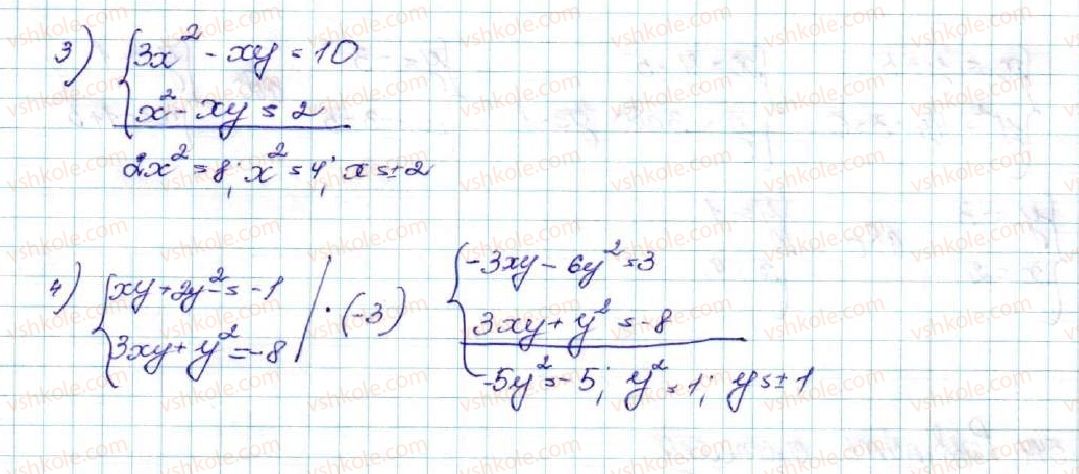 3) { 3x² - xy = 10
x² - xy = 2
2x² = 8; x² = 4; x = ±2
4) { xy + 2y² = -1 | · (-3)
3xy + y² = -8
{ -3xy - 6y² = 3
3xy + y² = -8
-5y² = -5; y² = 1; y = ±1